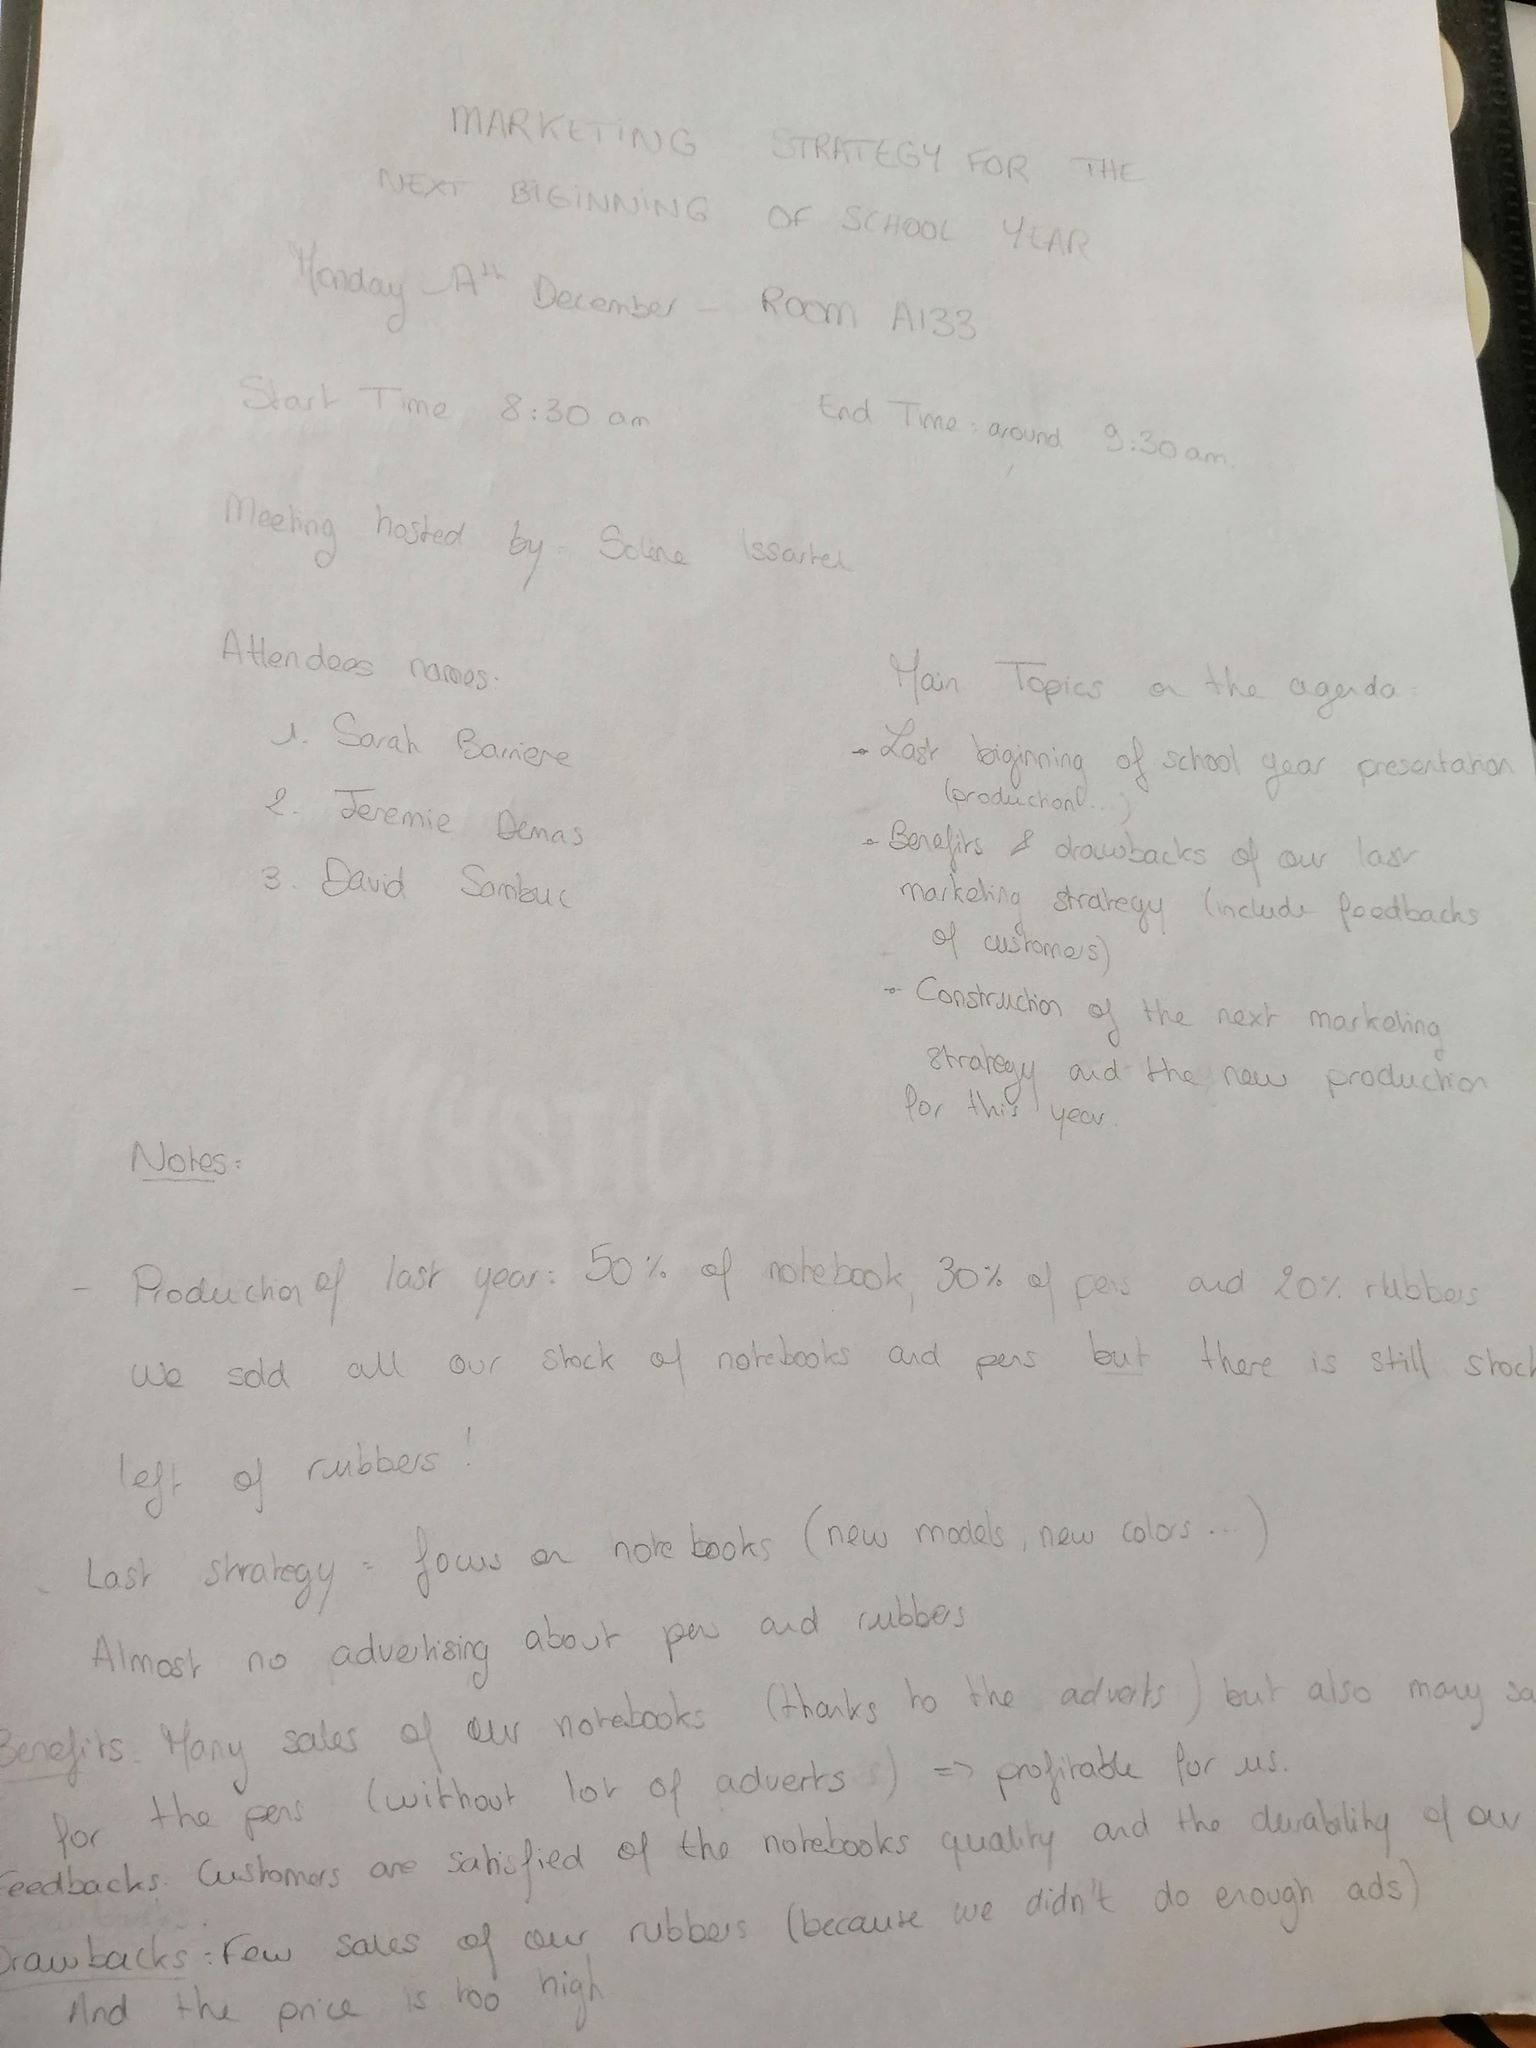 MARKETING STRATEGY FOR THE
NEXT BIGINNING OF SCHOOL YEAR
Monday December - ROOM A133
Start Time 8:30 am End Time: around 9:30 am.
Meeting hosted by: Soline Issartel
Attendees names:
1. Sarah Barriere
2. Jeremie Demas
3. David Sambuc
Main Topics on the agenda:
- Last biginning of school year presentation
(production...)
- Benefits & drawbacks of our last
marketing strategy (include feedbacks
of customers)
- Construction of the next marketing
strategy and the new production
for this year.
Notes:
- Production of last year: 50% of notebook, 30% of pens and 20% rubbers
We sold all our stock of notebooks and pens but there is still stock
left of rubbers!
- Last strategy = focus on notebooks (new models, new colors...)
Almost no advertising about pens and rubbers
Benefits: Many sales of our notebooks (thanks to the adverts) but also many sa
for the pens (without lot of adverts) => profitable for us.
Feedbacks: Customers are satisfied of the notebooks quality and the durability of our
Drawbacks: Few sales of our rubbers (because we didn't do enough ads)
And the price is too high